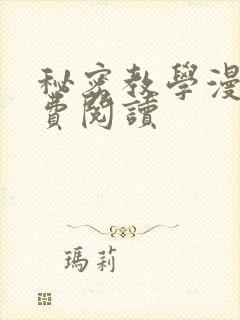 秘密教學漫
費閱讀
瑪莉